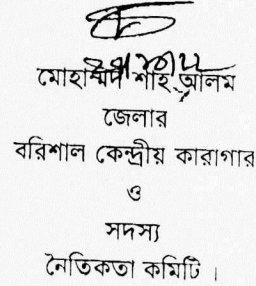 মোহাম্মদ শাহ আলম
জেলার
বরিশাল কেন্দ্রীয় কারাগার
ও
সদস্য
নৈতিকতা কমিটি ।